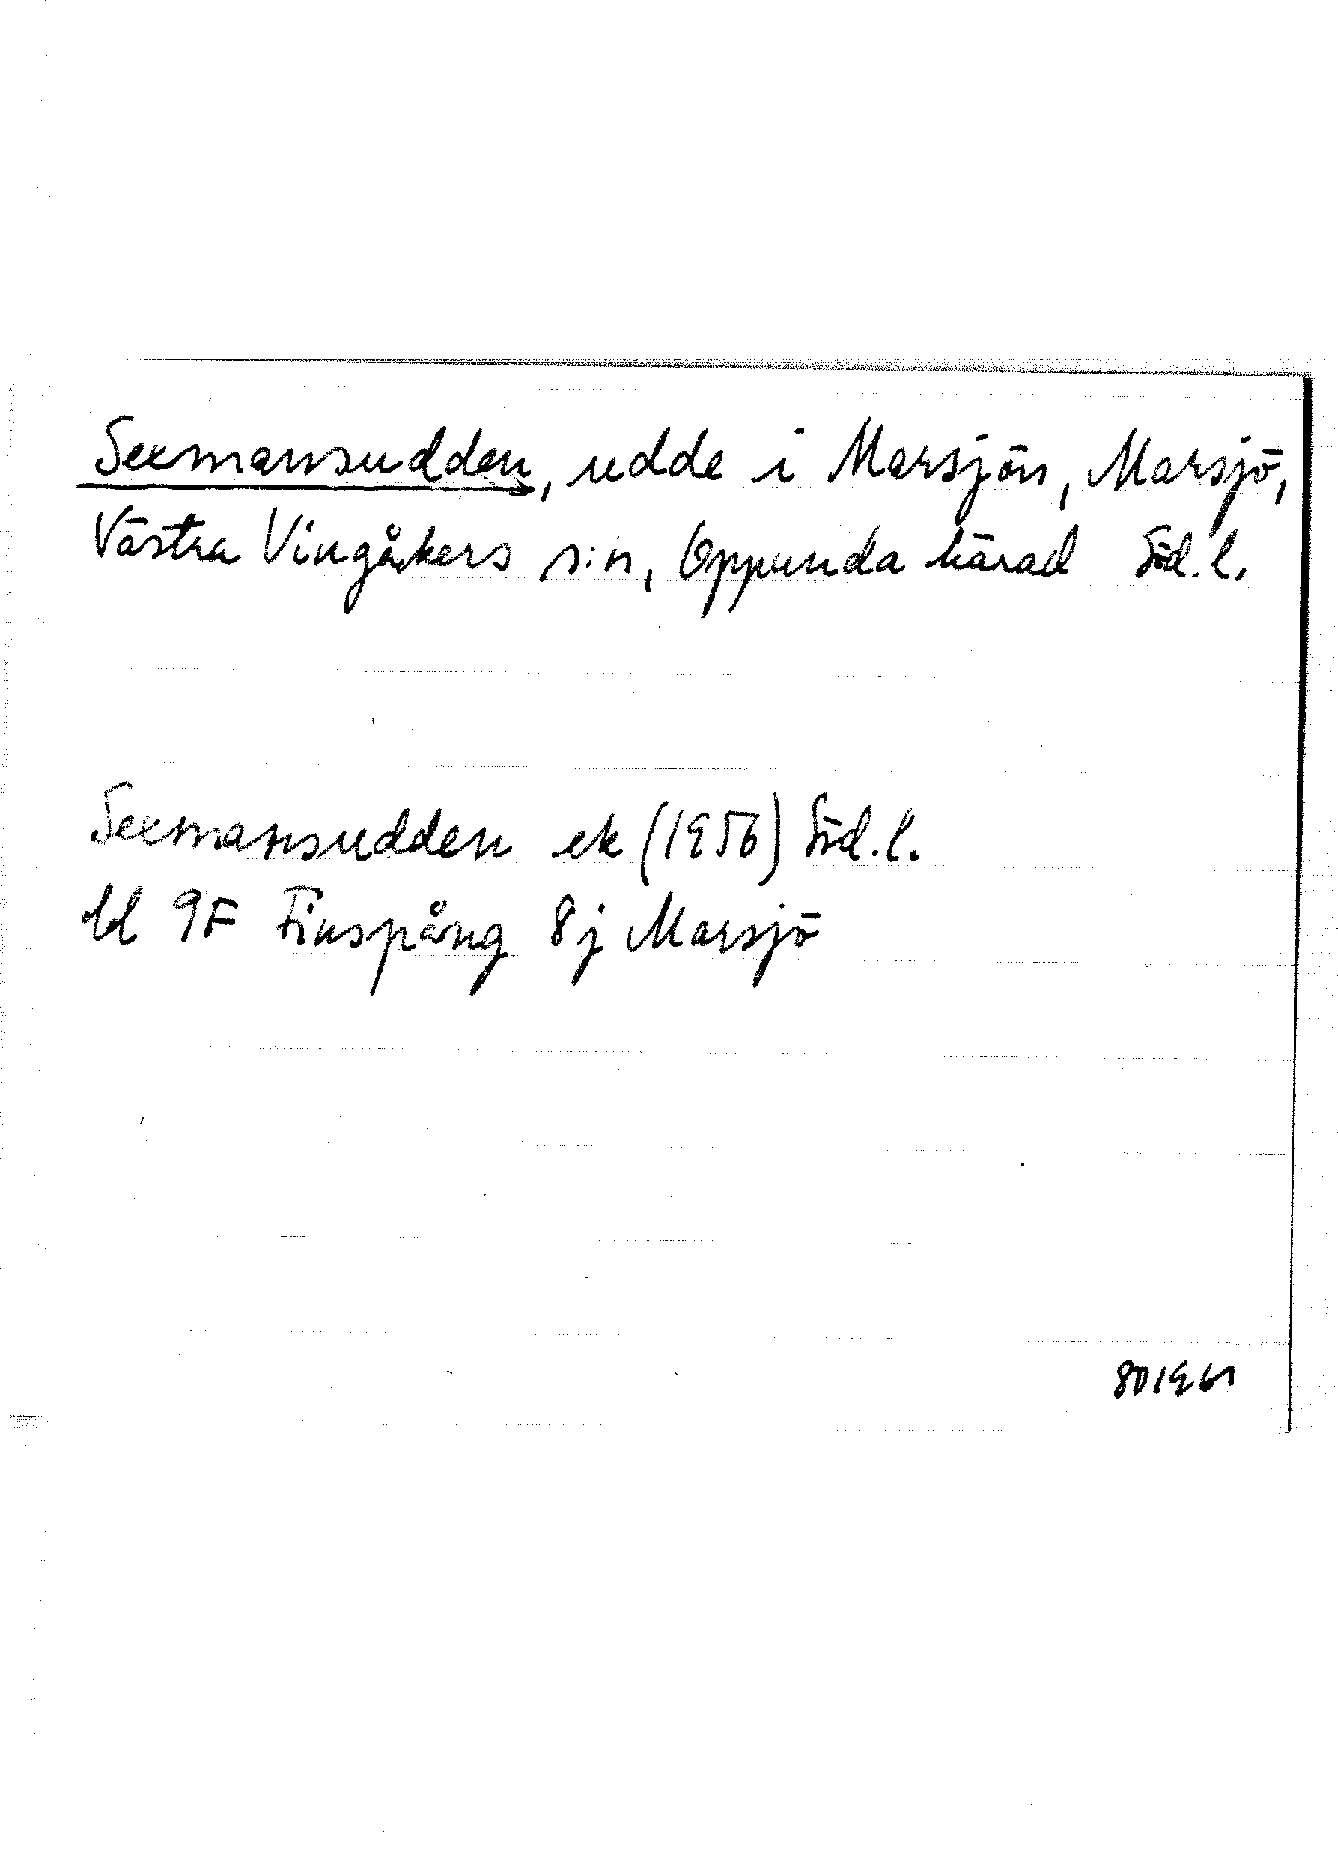 Sexmansudden, udde i Marsjön, Marsjö,
Västra Vingåkers s:n, Oppunda härad Söd.l.
Sexmansudden ek (1956) Söd.l.
bl 9F Finspång 8j Marsjö